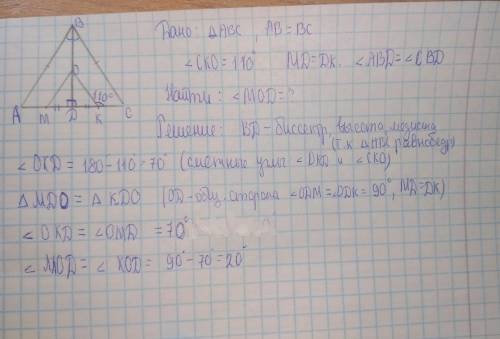 B
Дано: △ABC, AB=BC
∠CKO=110° MD=DK. ∠ABD=∠CBD
Найти: ∠MOD=?
O
110°
A M D K C
Решение: BD-биссектр, высота, медиана
(т.к △ABC равнобедр)
∠OKD=180-110=70° (смежные углы ∠OKD и ∠CKO)
△MDO=△KDO (OD-общ. сторона ∠ODM=∠ODK=90°, MD=DK)
∠OKD=∠OMD=70°
∠MOD=∠KOD=90°-70°=20°